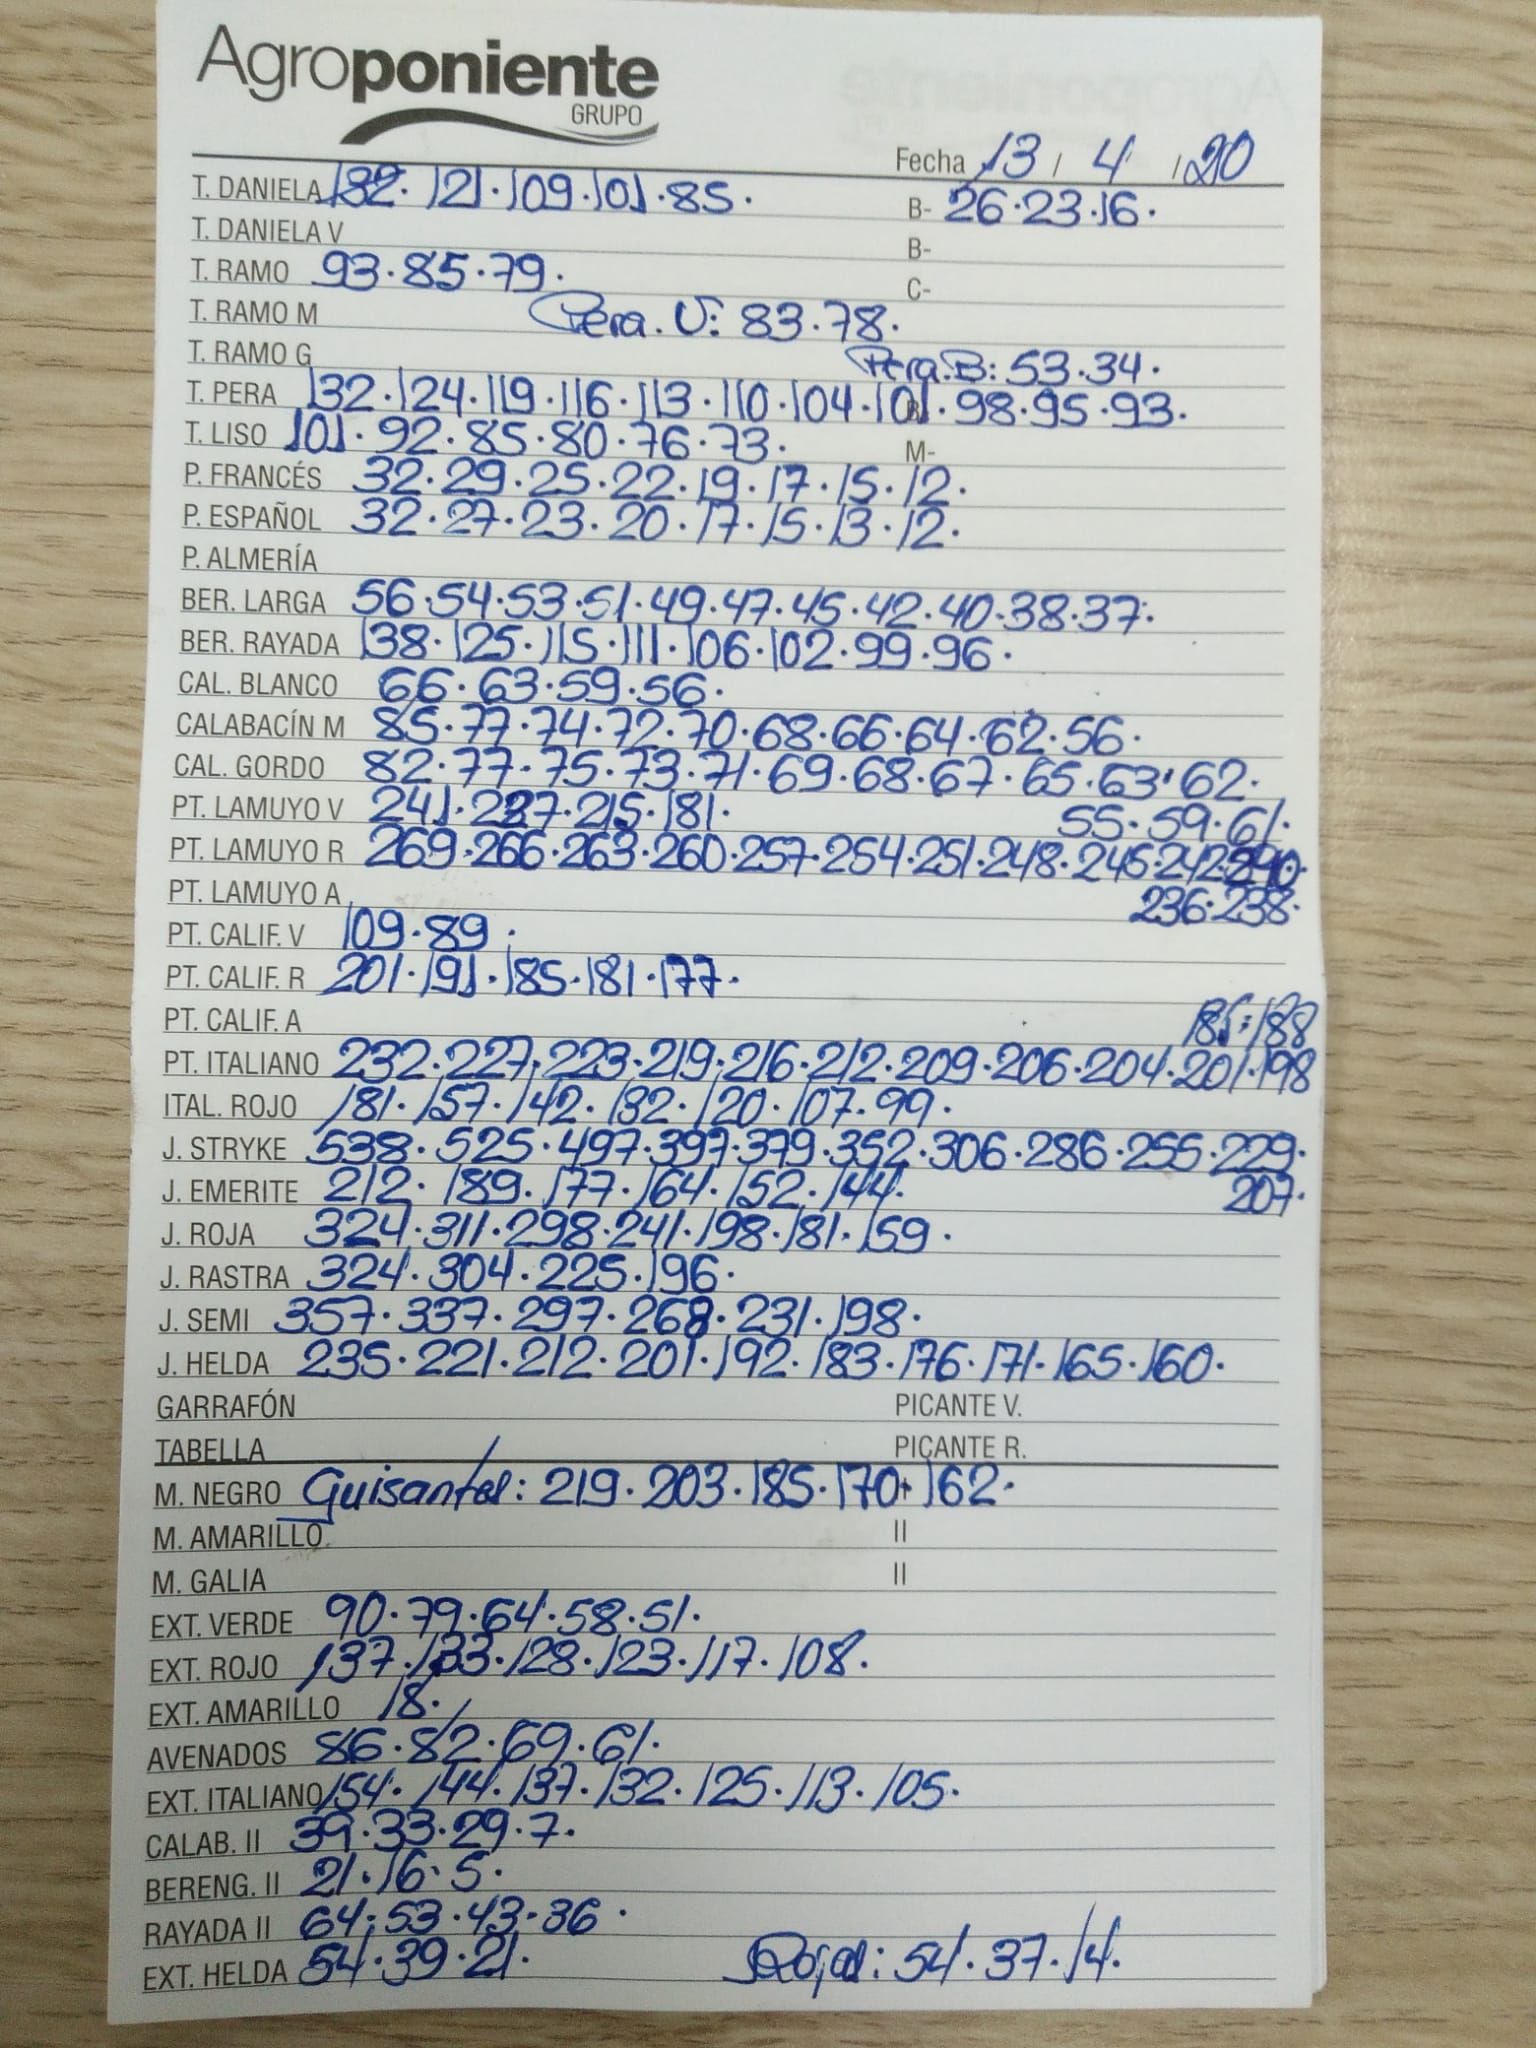 Agroponiente
GRUPO
Fecha 13 / 4 / 20
T. DANIELA 132. 121. 109. 101. 85. B- 26. 23. 16.
T. DANIELA V B-
T. RAMO 93. 85. 79. C-
T. RAMO M Pera. V: 83. 78.
T. RAMO G Pera. B: 53. 34.
T. PERA 132. 124. 119. 116. 113. 110. 104. 101. 98. 95. 93.
T. LISO 101. 92. 85. 80. 76. 73. M-
P. FRANCÉS 32. 29. 25. 22. 19. 17. 15. 12.
P. ESPAÑOL 32. 27. 23. 20. 17. 15. 13. 12.
P. ALMERÍA
BER. LARGA 56. 54. 53. 51. 49. 47. 45. 42. 40. 38. 37.
BER. RAYADA 138. 125. 115. 111. 106. 102. 99. 96.
CAL. BLANCO 66. 63. 59. 56.
CALABACÍN M 85. 77. 74. 72. 70. 68. 66. 64. 62. 56.
CAL. GORDO 82. 77. 75. 73. 71. 69. 68. 67. 65. 63. 62.
55. 59. 61.
PT. LAMUYO V 241. 227. 215. 181.
PT. LAMUYO R 269. 266. 263. 260. 257. 254. 251. 248. 245. 242.
236. 238.
PT. LAMUYO A
PT. CALIF. V 109. 89.
PT. CALIF. R 201. 191. 185. 181. 177.
PT. CALIF. A 188
PT. ITALIANO 232. 227. 223. 219. 216. 212. 209. 206. 204. 201. 198
ITAL. ROJO 181. 157. 142. 132. 120. 107. 99.
J. STRYKE 538. 525. 497. 397. 379. 352. 306. 286. 255. 229.
207.
J. EMERITE 212. 189. 177. 164. 152. 144.
J. ROJA 324. 311. 298. 241. 198. 181. 159.
J. RASTRA 324. 304. 225. 196.
J. SEMI 357. 337. 297. 268. 231. 198.
J. HELDA 235. 221. 212. 201. 192. 183. 176. 171. 165. 160.
GARRAFÓN PICANTE V.
TABELLA PICANTE R.
M. NEGRO Guisantes: 219. 203. 185. 170. 162.
M. AMARILLO II
M. GALIA II
EXT. VERDE 90. 79. 64. 58. 51.
EXT. ROJO 137. 133. 128. 123. 117. 108.
EXT. AMARILLO 18.
AVENADOS 86. 82. 69. 61.
EXT. ITALIANO 154. 144. 137. 132. 125. 113. 105.
CALAB. II 39. 33. 29. 7.
BERENG. II 21. 16. 5.
RAYADA II 64. 53. 43. 36.
EXT. HELDA 54. 39. 21. Rojos: 54. 37. 14.